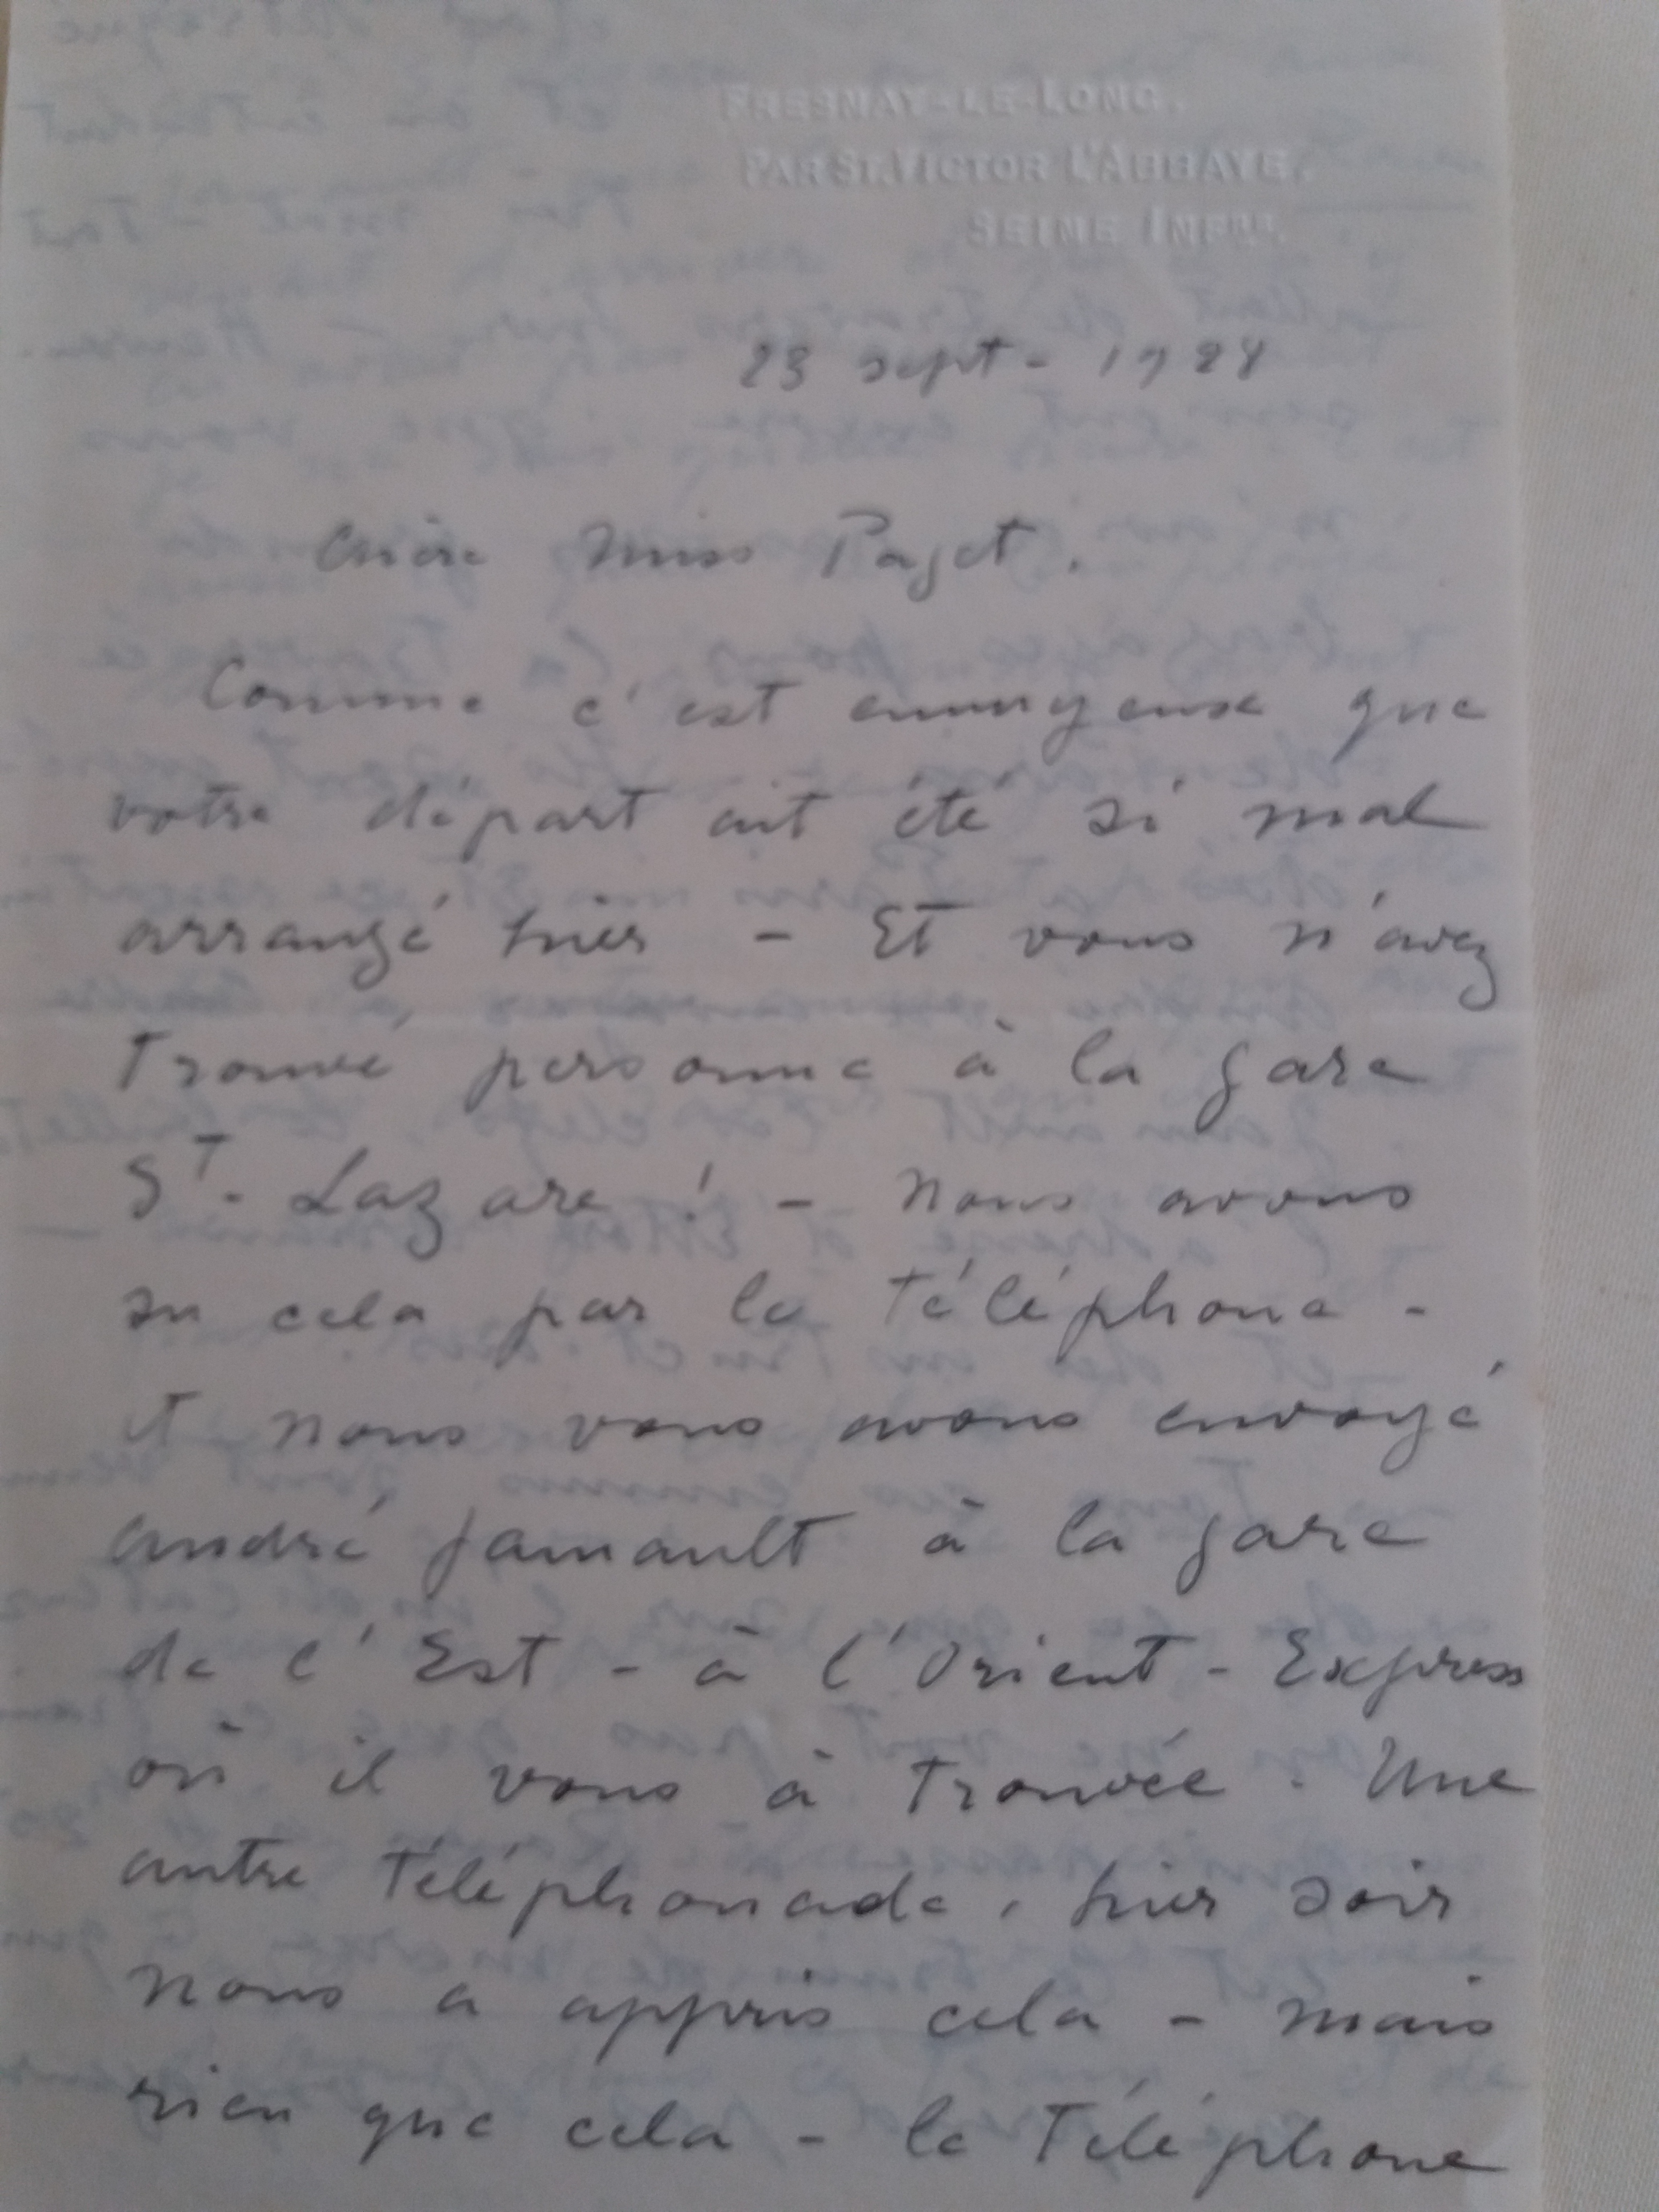 FRESNAY-LE-LONG.
PAR ST. VICTOR L'ABBAYE.
SEINE INFRE.
23 sept - 1928
Chère Miss Paget.
Comme c'est ennuyeuse que
votre départ ait été si mal
arrangé hier - Et vous n'avez
Trouvé personne à la gare
ST. Lazare ! - Nous avons
su cela par le Téléphone -
et nous vous avons envoyé
André Jamault à la gare
de l'Est - à l'Orient-Express
où il vous à Trouvée. Une
autre Téléphonade, hier soir
nous a appris cela - mais
rien que cela - le Téléphone